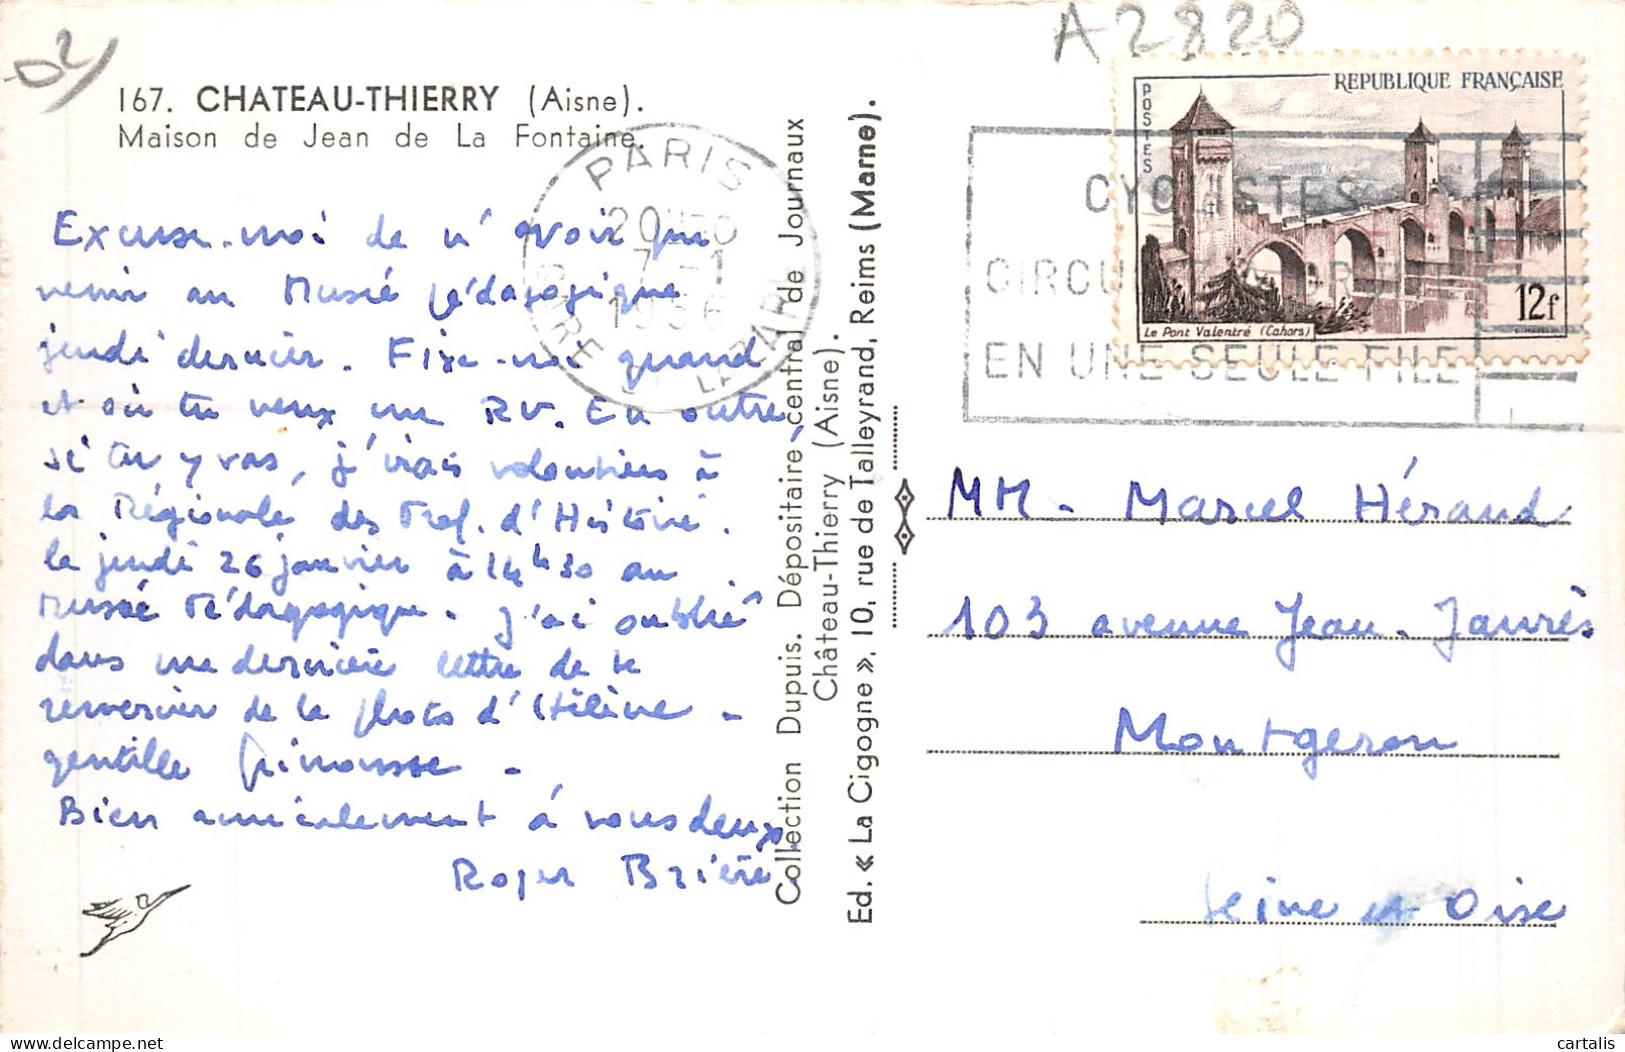 02
A2820
167. CHATEAU-THIERRY (Aisne).
Maison de Jean de La Fontaine.
PARIS
20H
7-1
1956
GARE ST LAZARE
Excuse-moi de n'avoir pu
venir au Musée pédagogique
jeudi dernier. Fixe-moi quand
et où tu veux un RV. En outre,
si tu y vas, j'irais volontiers à
la Régionale des Prof. d'Histoire.
le jeudi 26 janvier à 14h30 au
Musée Pédagogique. J'ai oublié
dans ma dernière lettre de te
remercier de la photo d'Hélène -
gentille frimousse -
Bien amicalement à vous deux.
Roger Brière
Collection Dupuis. Dépositaire central de Journaux
Château-Thierry (Aisne).
Ed. « La Cigogne », 10, rue de Talleyrand, Reims (Marne).
REPUBLIQUE FRANÇAISE
POSTES
Le Pont Valentré (Cahors)
12f
CYCLISTES
EN UNE SEULE FILE
MM - Marcel Héraud
103 avenue Jean-Jaurès
Montgeron
Seine et Oise
cartalis